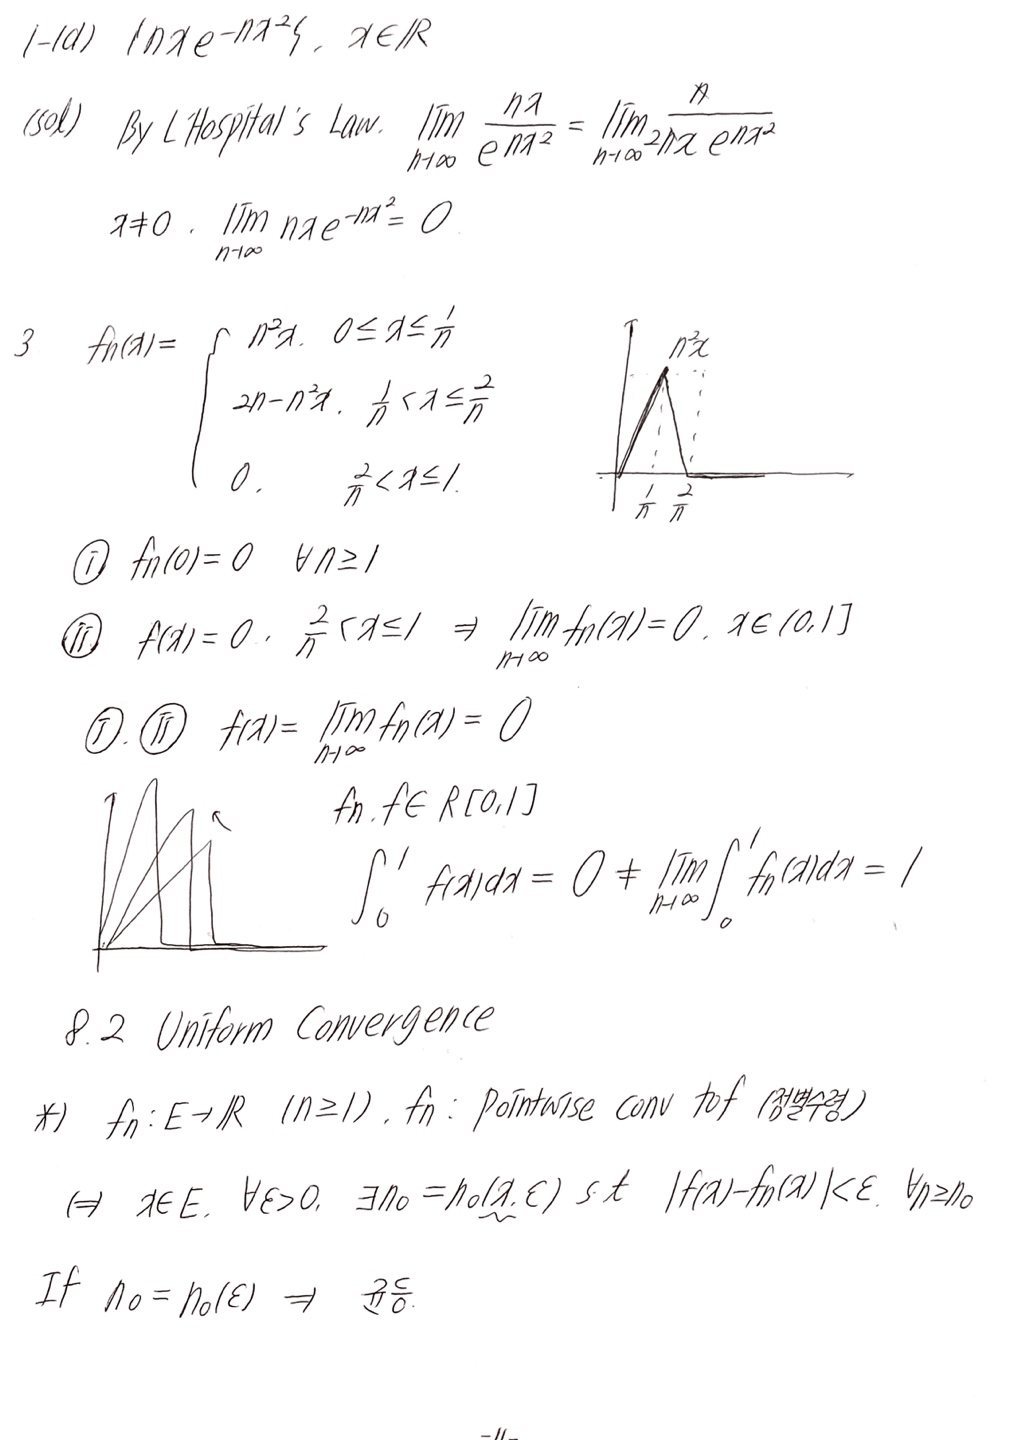 1-1d) {nxe^{-nx²}}, x∈ℝ
(sol) By L'Hospital's Law. lim_{n→∞} nx/e^{nx²} = lim_{n→∞} n/(2nx e^{nx²})
x≠0. lim_{n→∞} nxe^{-nx²} = 0.
3 fn(x) = { n²x. 0≤x≤1/n
2n-n²x. 1/n<x≤2/n
0. 2/n<x≤1.
n²x
1/n 2/n
ⓘ fn(0)=0 ∀n≥1
ⓘⓘ f(x)=0. 2/n<x≤1 ⇒ lim_{n→∞} fn(x)=0. x∈(0,1]
ⓘ.ⓘⓘ f(x)= lim_{n→∞} fn(x)=0
fn. f∈R[0,1]
∫₀¹ f(x)dx = 0 ≠ lim_{n→∞} ∫₀¹ fn(x)dx = 1
8.2 Uniform Convergence
*) fn:E→ℝ (n≥1). fn: pointwise conv to f (점별수렴)
⇔ x∈E. ∀ε>0. ∃n₀=n₀(x.ε) s.t |f(x)-fn(x)|<ε. ∀n≥n₀
If n₀=n₀(ε) ⇒ 균등.
-11-